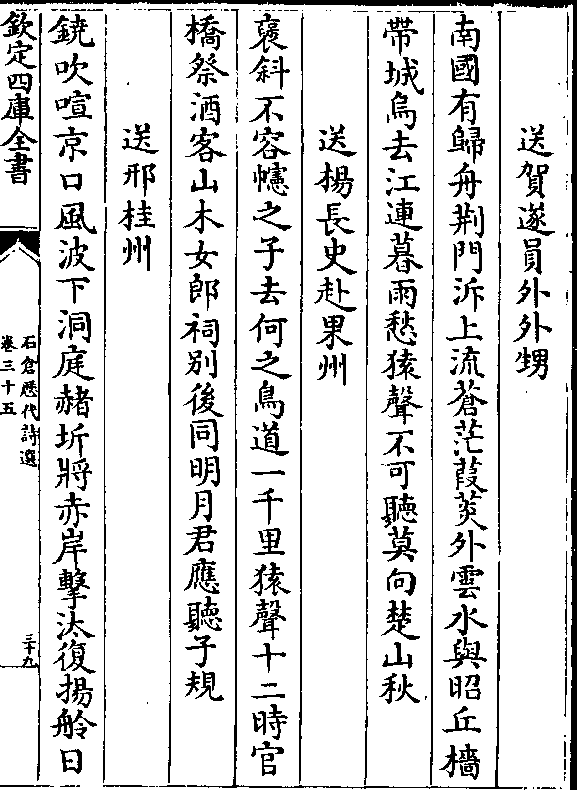 送賀遂員外外甥
南國有歸舟荆門泝上流蒼茫葭菼外雲水與昭丘檣
帶城烏去江連暮雨愁猿聲不可聽莫向楚山秋
送楊長史赴果州
襃斜不容幰之子去何之鳥道一千里猿聲十二時官
橋祭酒客山木女郎祠别後同明月君應聽子規
送邢桂州
鐃吹喧京口風波下洞庭赭圻將赤岸擊汰復揚舲日
欽定四庫全書
石倉歷代詩選
卷三十五
三十九